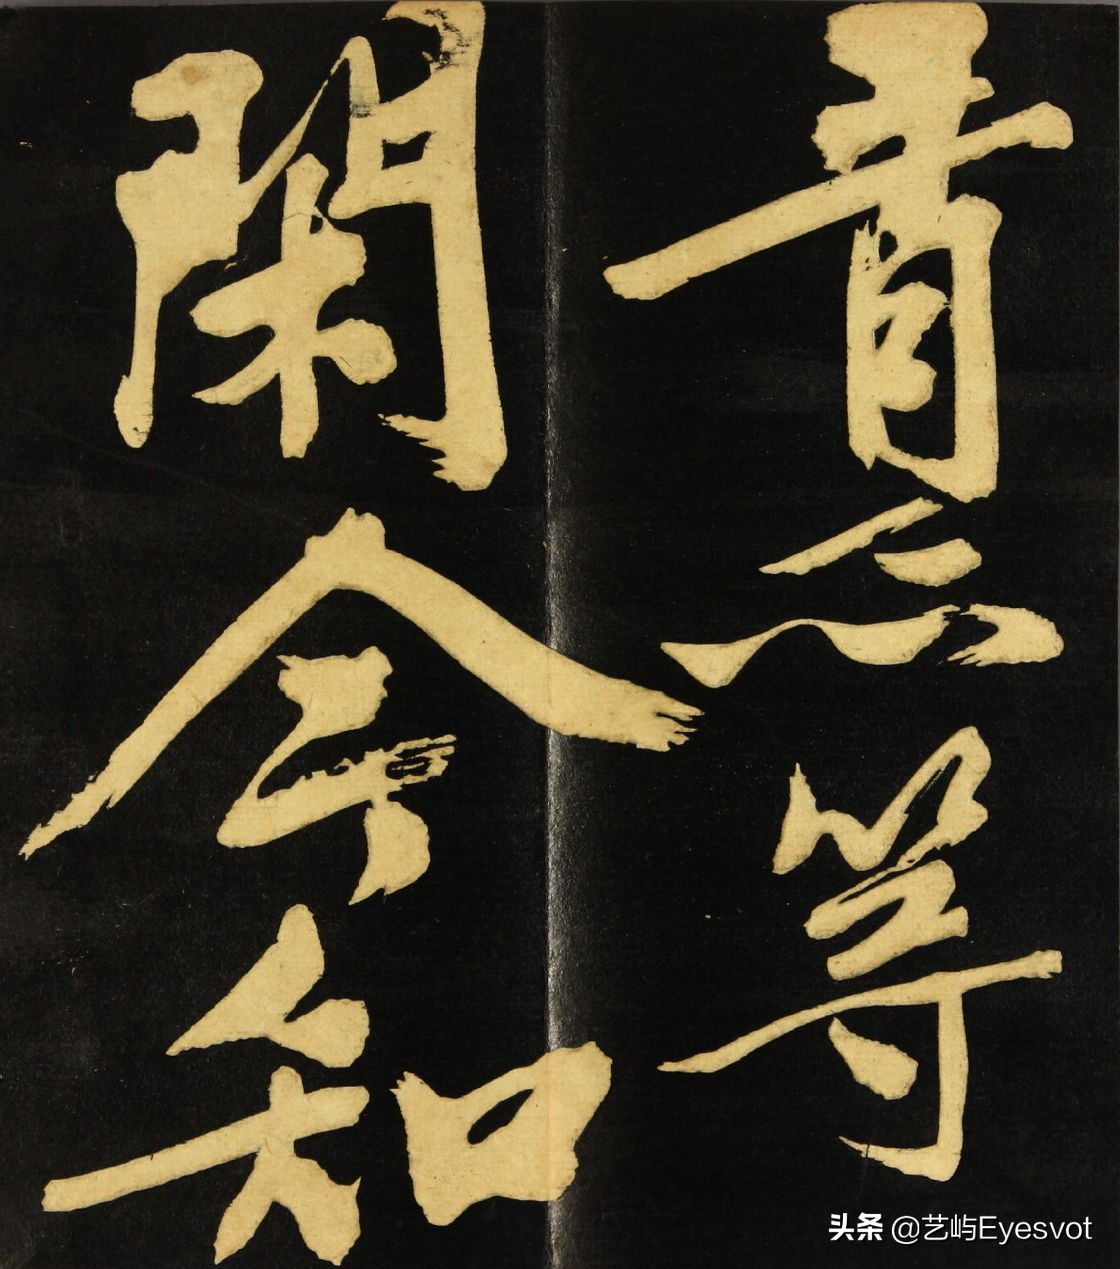 意等
閑今知
头条 @艺屿Eyesvot